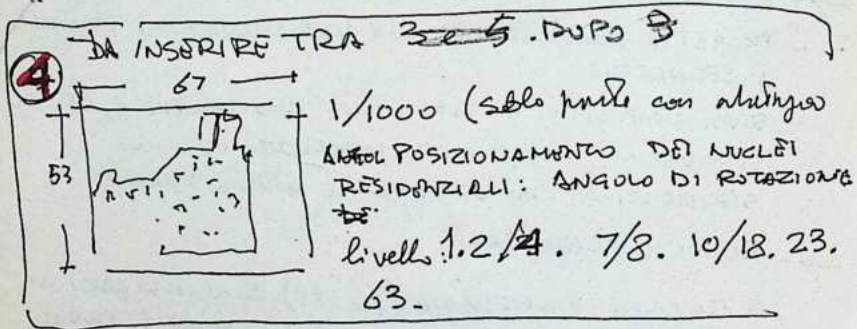 DA INSERIRE TRA 3 e 5. DOPO 3
4
67
53
1/1000 (solo parte con
ANGOL POSIZIONAMENTO DEI NUCLEI
RESIDENZIALI: ANGOLO DI ROTAZIONE
DE
livello: 1.2/4. 7/8. 10/18. 23.
63.